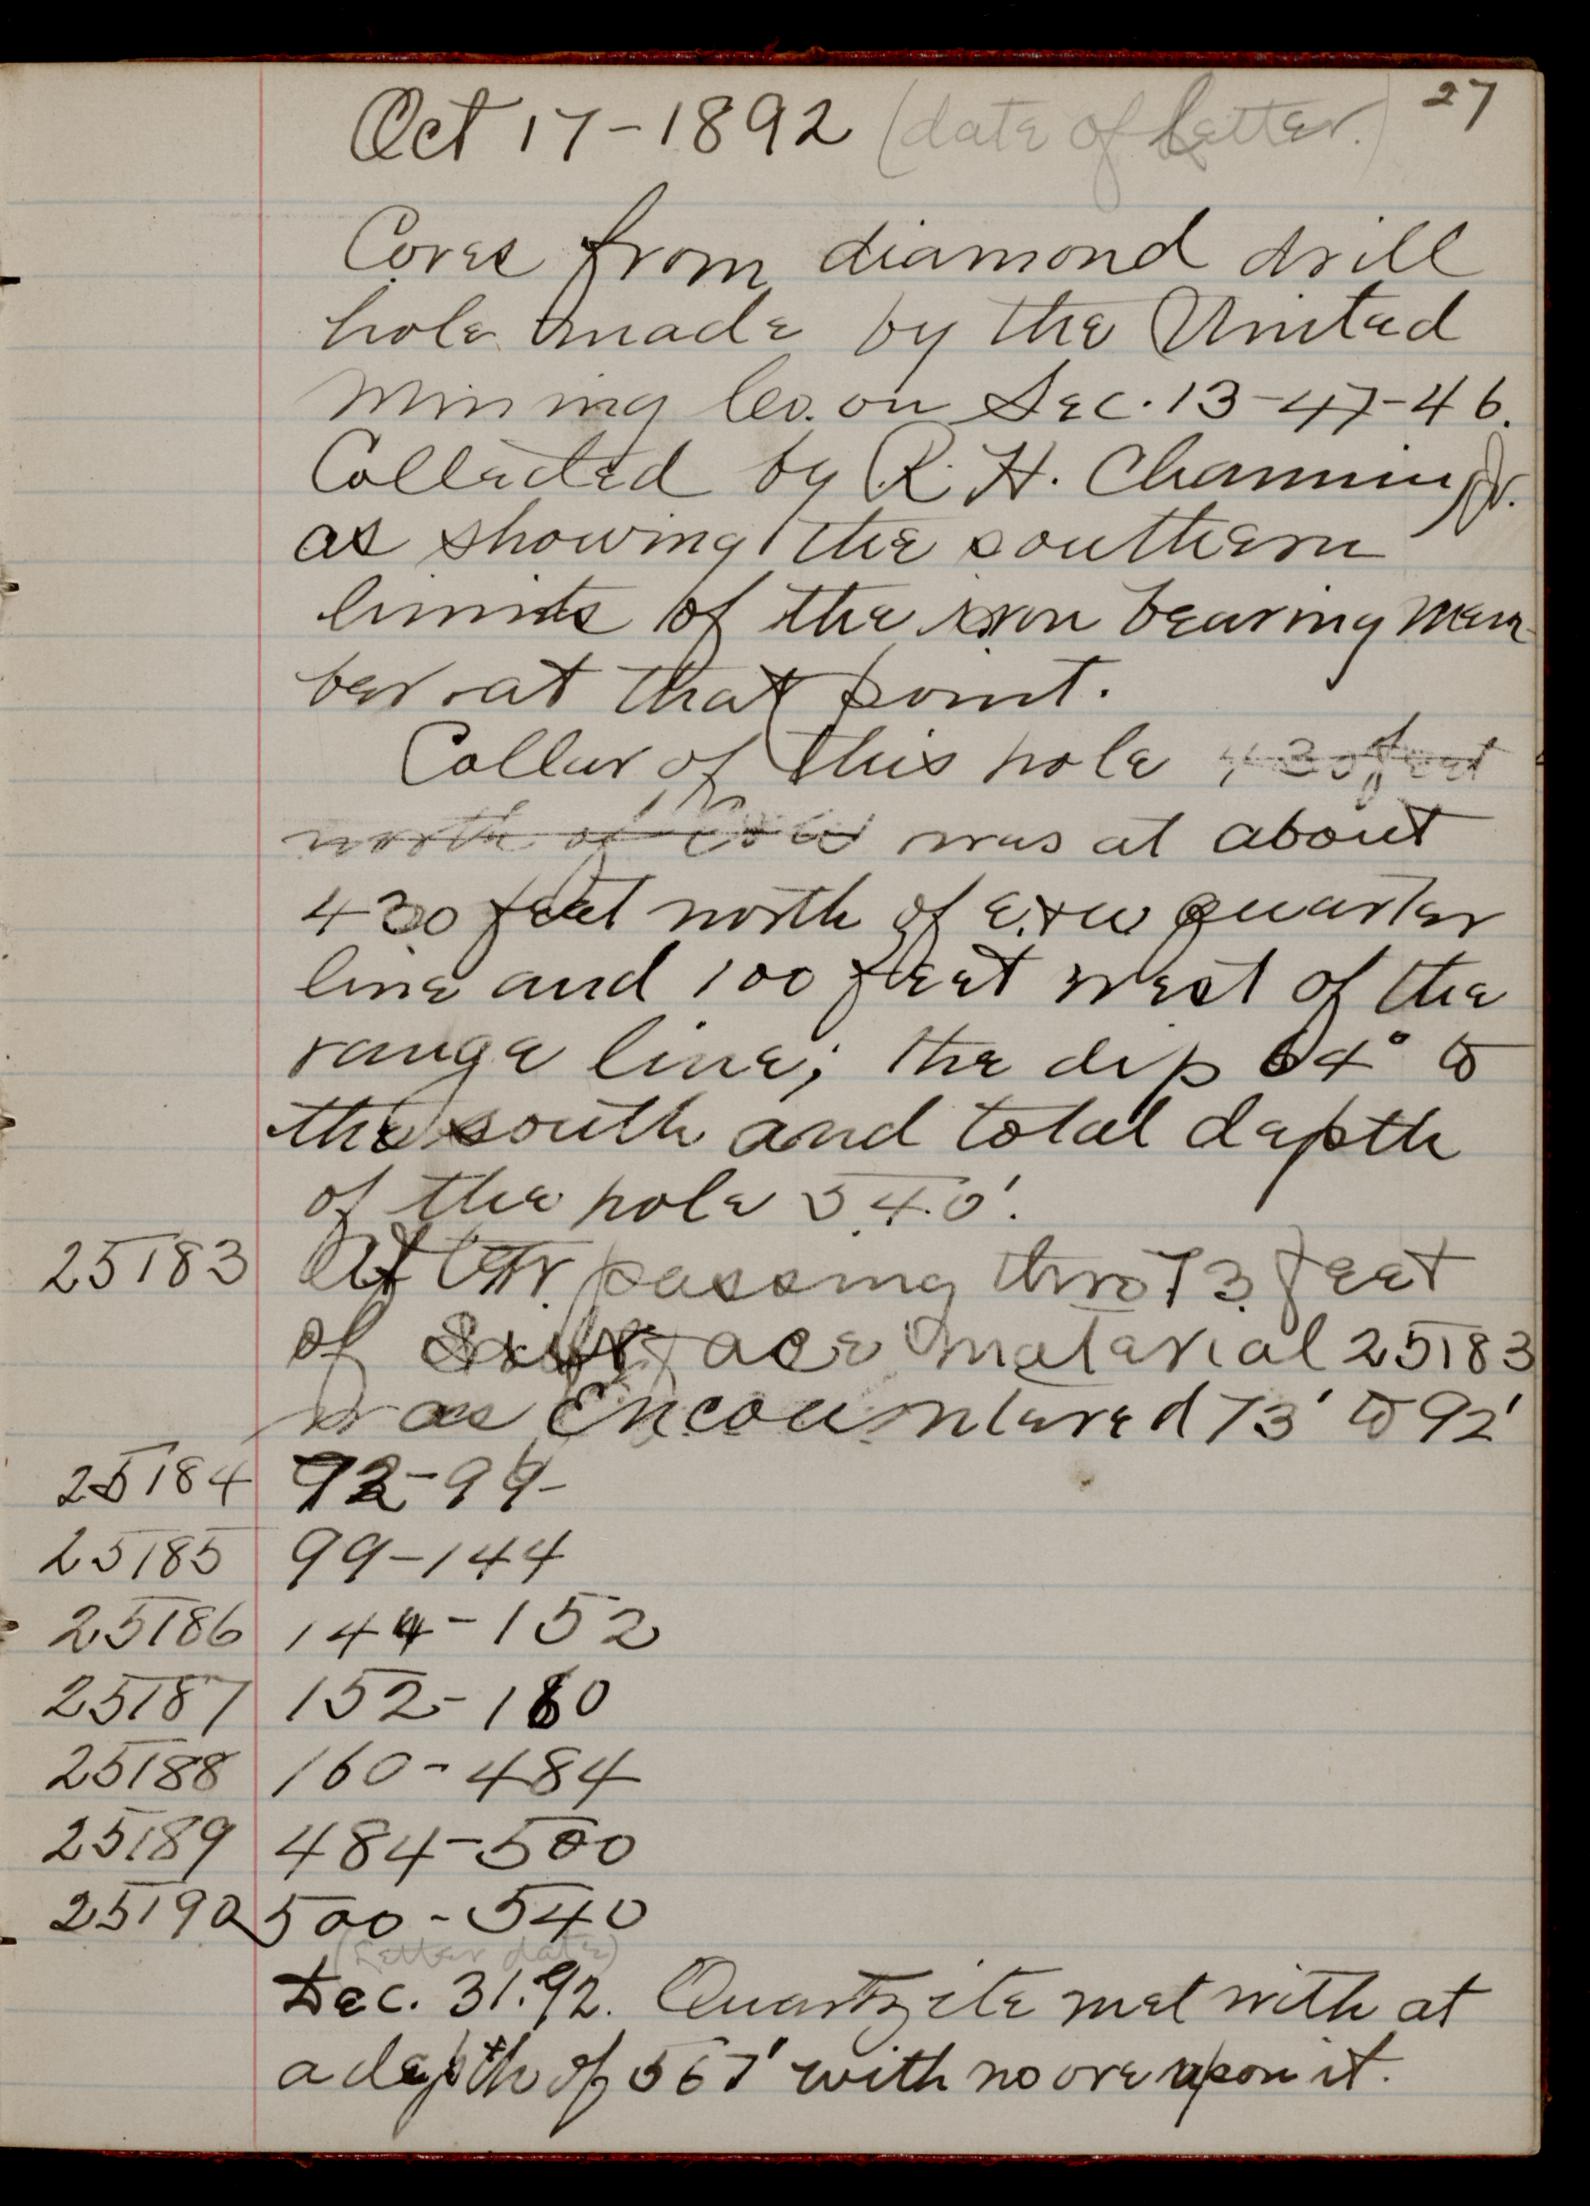 27
Oct 17-1892 (date of letter.)
Cores from diamond drill
hole made by the United
Mining Co. on Sec. 13-47-46.
Collected by R. H. Channing Jr.
as showing the southern
limits of the iron bearing mem-
ber at that point.
Collar of this hole 430 feet
north of E & W was at about
430 feet north of E. & W quarter
line and 100 feet west of the
range line; the dip 64° to
the south and total depth
of the hole 540'.
25183 After passing thro 73 feet
of surface material 25183
was encountered 73' to 92'
25184 92-99-
25185 99-144
25186 144-152
25187 152-160
25188 160-484
25189 484-500
25190 500-540
(Letter date)
Dec. 31.92. Quartzite met with at
a depth of 567' with no ore upon it.